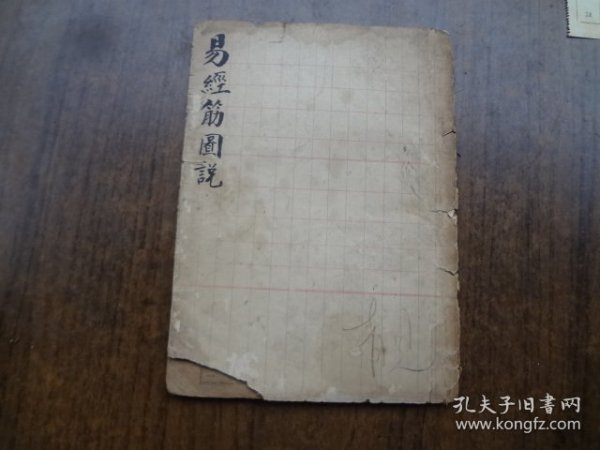 易經筋圖説
孔夫子旧書网
www.kongfz.com